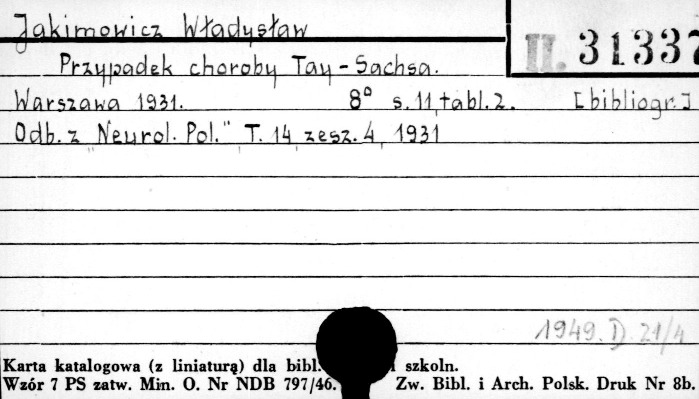 Jakimowicz Władysław
II. 31337
Przypadek choroby Tay-Sachsa.
Warszawa 1931. 8° s. 11, tabl. 2. [bibliogr.]
Odb. z "Neurol. Pol." T. 14, zesz. 4, 1931
1949. D. 21/4
Karta katalogowa (z liniaturą) dla bibl. i szkoln.
Wzór 7 PS zatw. Min. O. Nr NDB 797/46. Zw. Bibl. i Arch. Polsk. Druk Nr 8b.